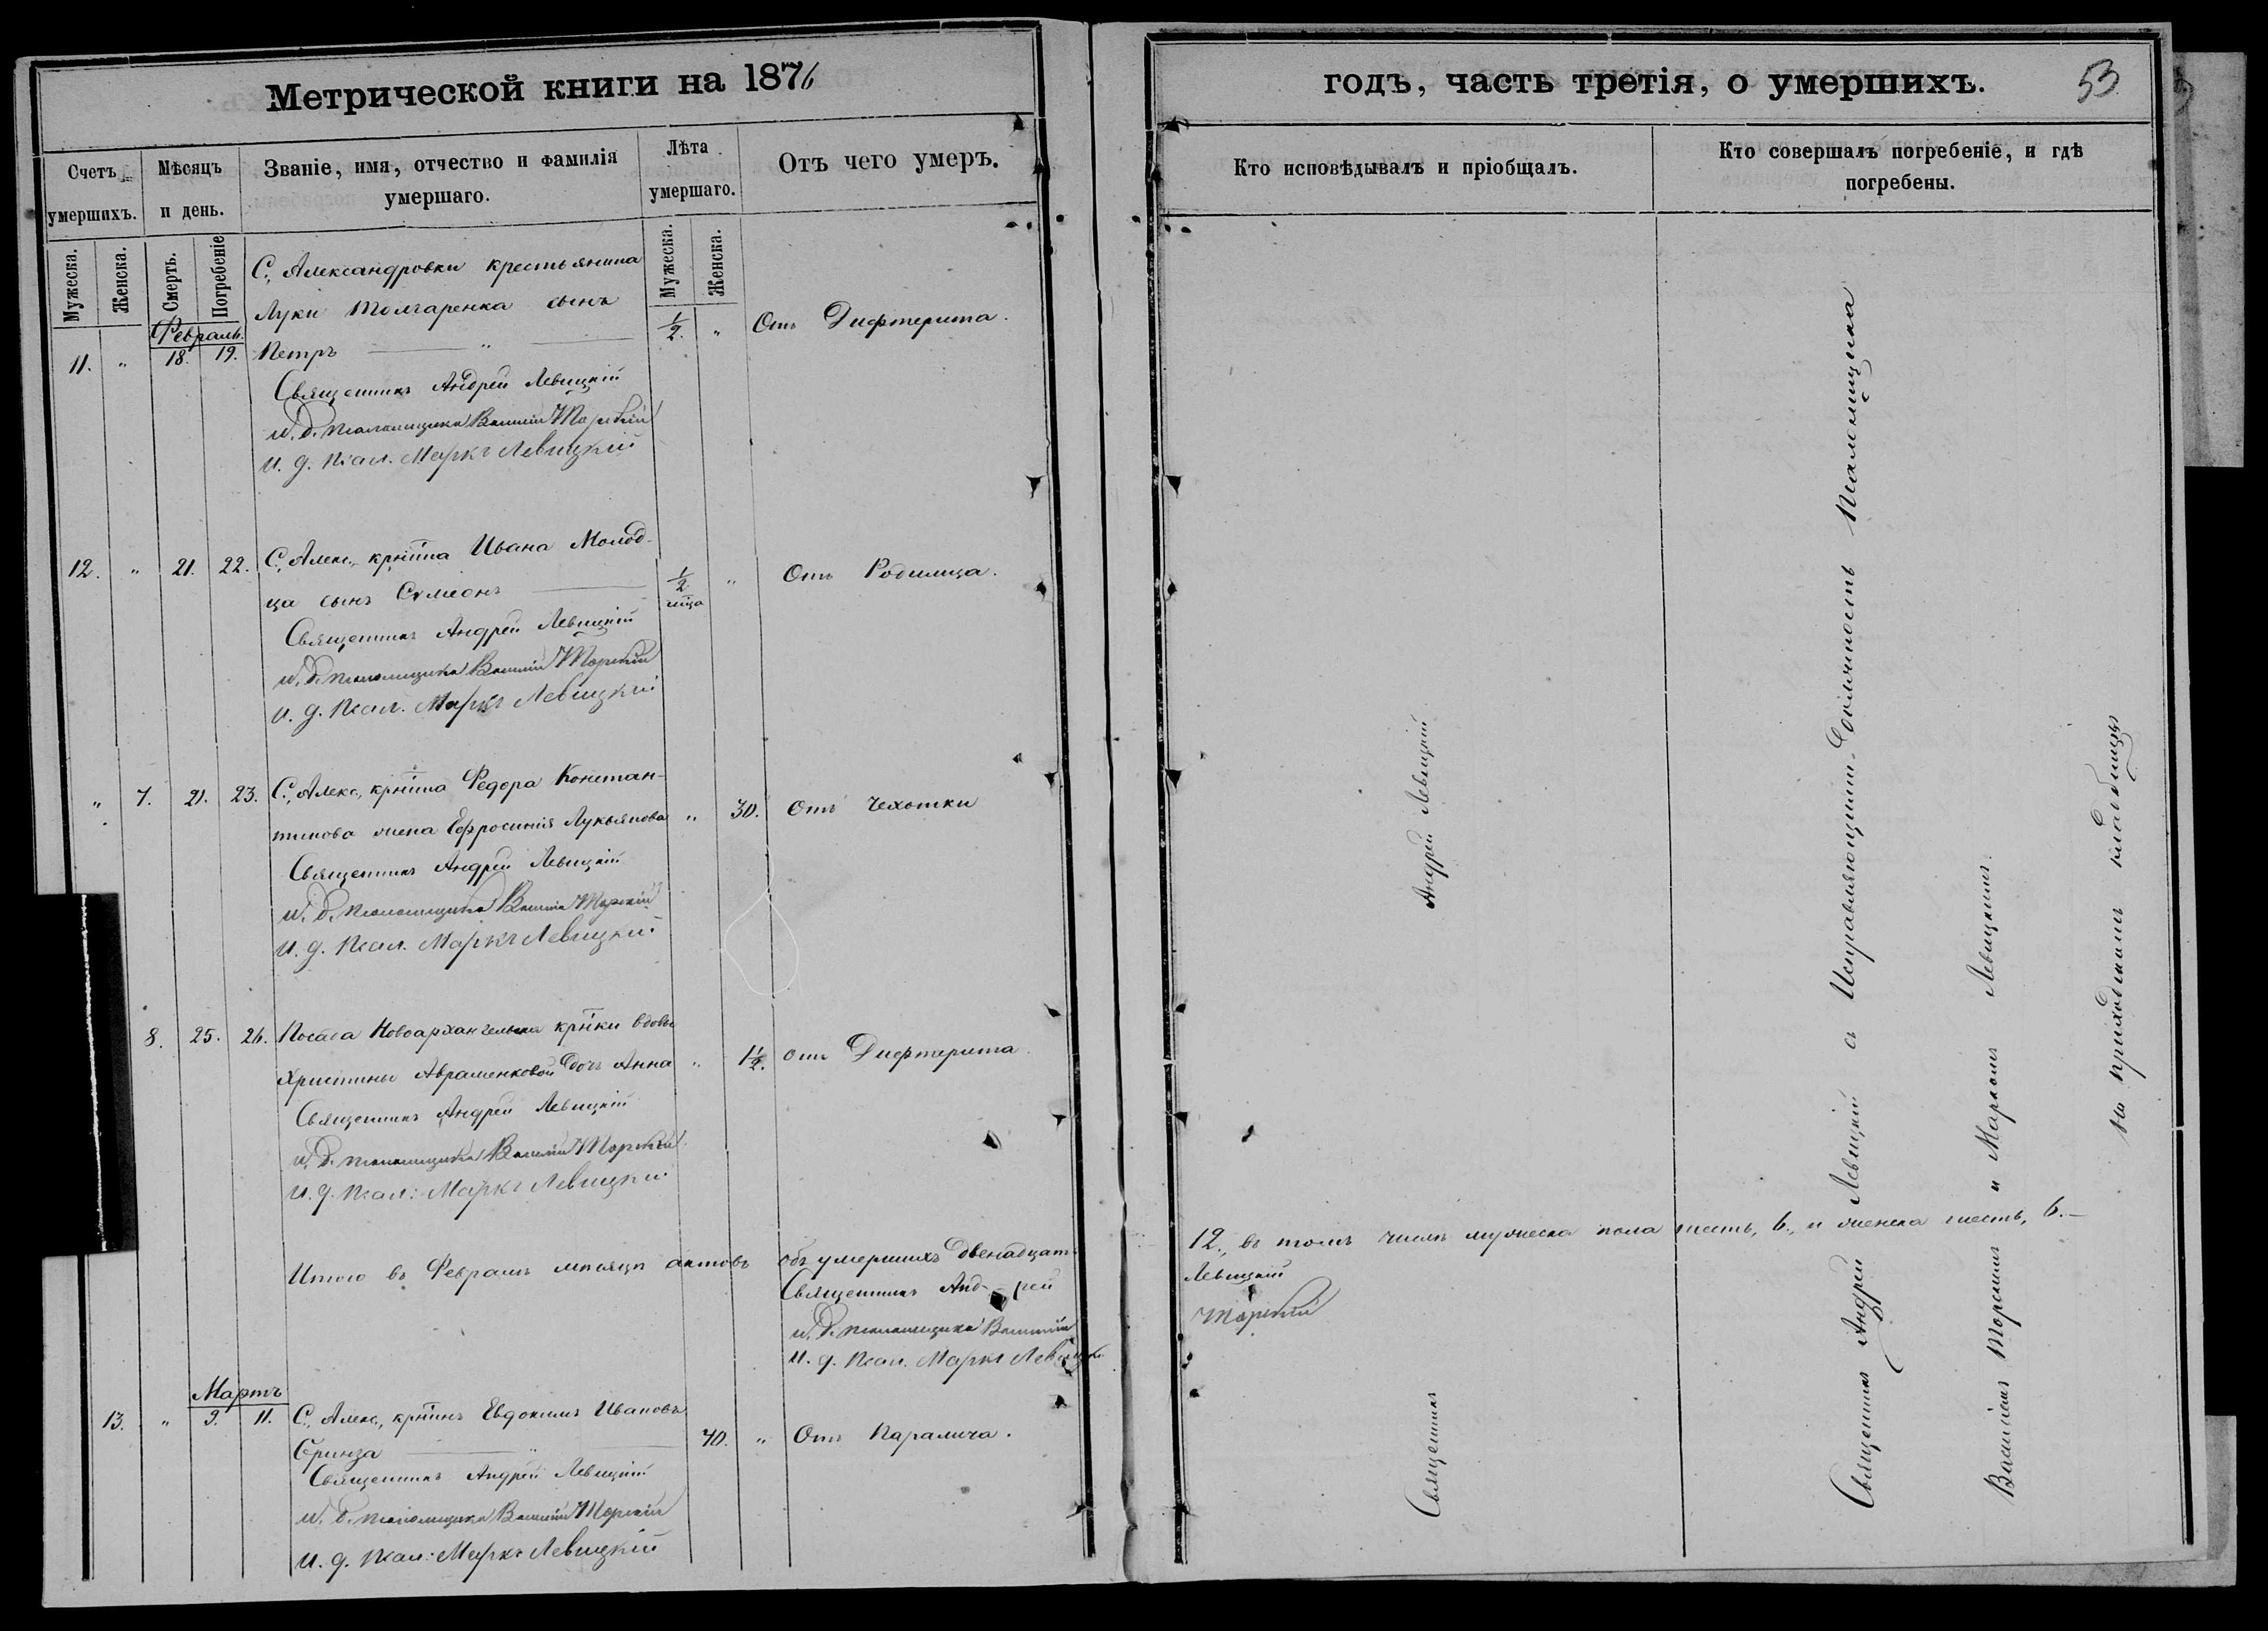 Метрической книги на 1876
годъ, часть третія, о умершихъ.
53
Счетъ умершихъ.
Мѣсяцъ и день.
Званіе, имя, отчество и фамилія умершаго.
Лѣта умершаго.
Отъ чего умеръ.
Кто исповѣдывалъ и пріобщалъ.
Кто совершалъ погребеніе, и гдѣ погребены.
Мужеска.
Женска.
Смерть.
Погребеніе
Мужеска.
Женска.
Февраль.
С., Александровки крестьянина
Луки Толчаренка сынъ
11. " 18. 19. Петръ " 1/2. " Отъ Дифтерита.
Священникъ Андрей Левицкій
И. д. псаломщика Василій Торскій
И. д. псал. Маркъ Левицкій
12. " 21. 22. С., Алекс., кр̃нина Ивана Молод-
ца сынъ Сѵмеонъ 1/2 м̃ца " Отъ Родимца.
Священникъ Андрей Левицкій
И. д. псаломщика Василій Торскій
И. д. псал. Маркъ Левицкій
" 7. 21. 23. С., Алекс., кр̃нина Федора Констан-
тинова жена Ефросинія Лукьянова " 30. Отъ Чехотки
Священникъ Андрей Левицкій
И. д. псаломщика Василій Торскій
И. д. псал. Маркъ Левицкій
8. 25. 26. Посада Новоархангельска кр̃нки вдовы
Христины Авраменковой дочь Анна " 1 1/2. отъ Дифтерита.
Священникъ Андрей Левицкій
И. д. псаломщика Василій Торскій
И. д. псал: Маркъ Левицкій
Итого въ Февралѣ мѣсяцѣ актовъ объ умершихъ двенадцать 12., въ томъ числѣ мужеска пола шесть, 6., и женска шесть, 6.—
Священникъ Андрей Левицкій
И. д. псаломщика Василій Торскій
И. д. псал. Маркъ Левицкі
Мартъ
13. " 9. 11. С., Алекс., кр̃нинъ Евдокимъ Ивановъ
70. " Отъ Паралича.
Священникъ Андрей Левицкій
И. д. псаломщика Василій Торскій
И. д. псал: Маркъ Левицкій
Священникъ Андрей Левицкій
Священникъ Андрей Левицкій съ Исправляющими Должность Псаломщика
Василіемъ Торскимъ и Маркомъ Левицкимъ.
На приходскомъ кладбищѣ